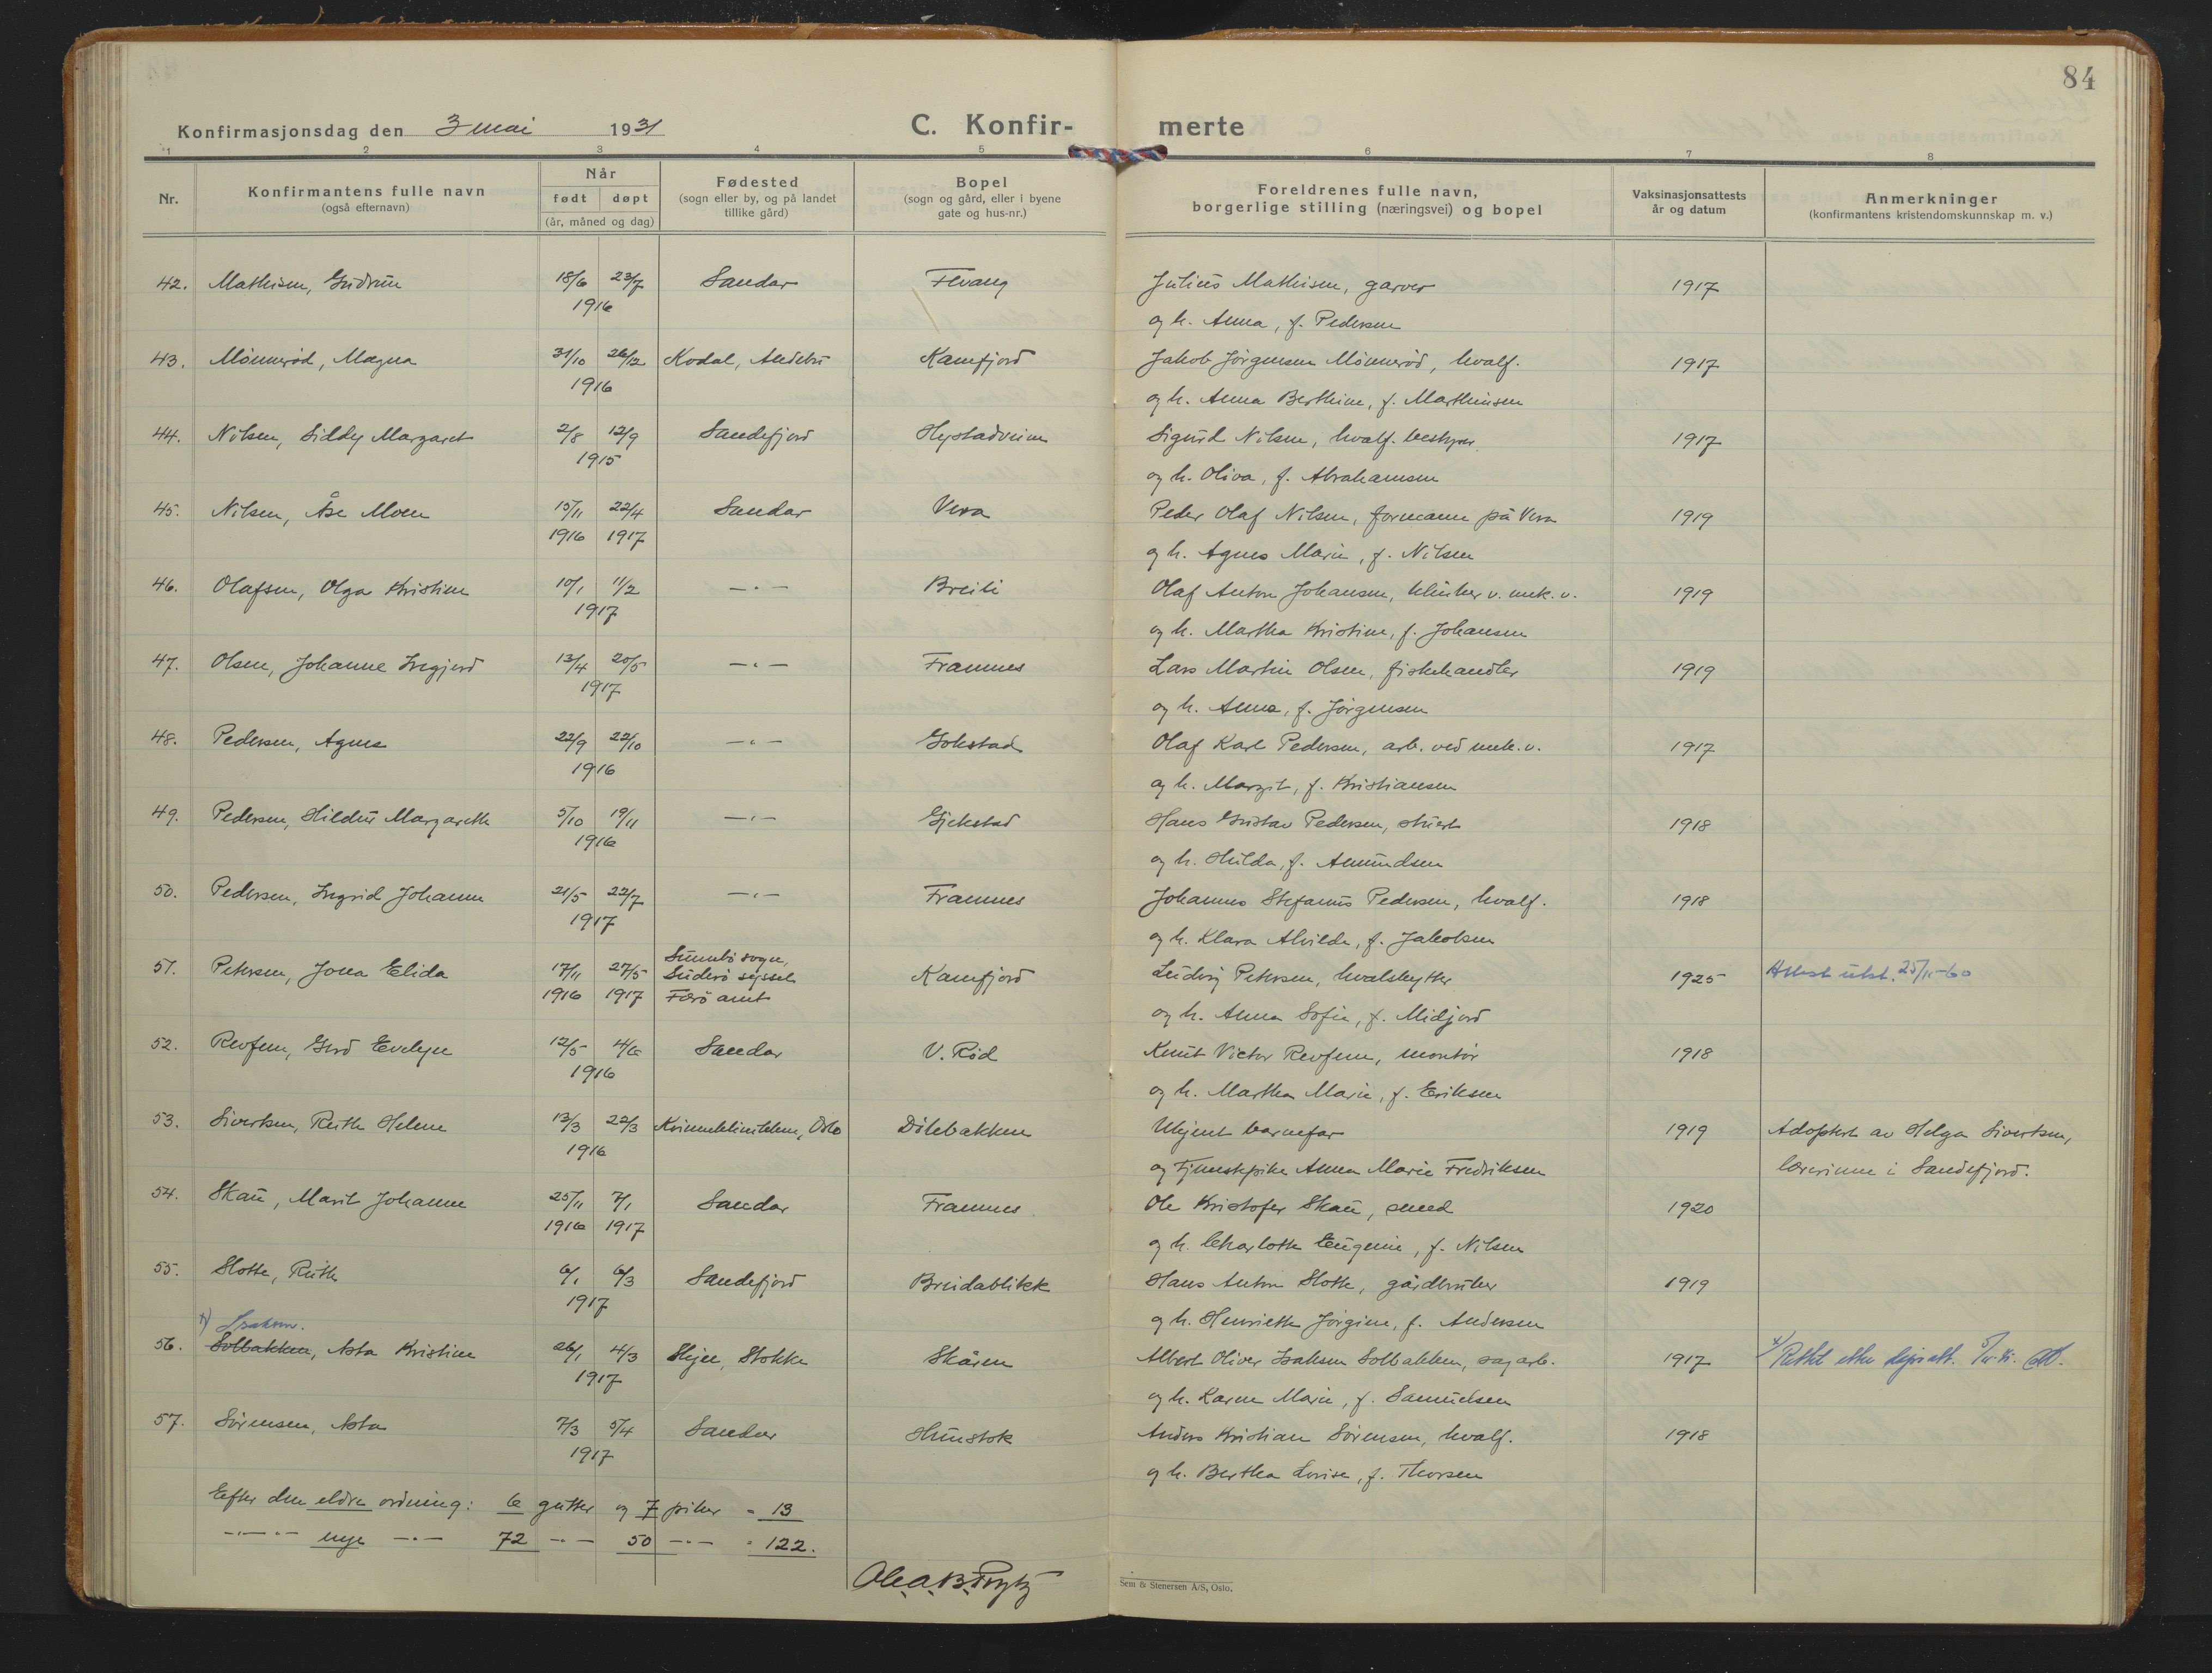 84
Konfirmasjonsdag den 3 mai 1931
C. Konfir- merte
1 2 3 4 5 6 7 8
Nr.
Konfirmantens fulle navn
(også efternavn)
Når
født døpt
(år, måned og dag)
Fødested
(sogn eller by, og på landet
tillike gård)
Bopel
(sogn og gård, eller i byene
gate og hus-nr.)
Foreldrenes fulle navn,
borgerlige stilling (næringsvei) og bopel
Vaksinasjonsattests
år og datum
Anmerkninger
(konfirmantens kristendomskunnskap m. v.)
42. Mathisen, Gudrun 18/6 23/7 Sandar Fevang Julius Mathisen, garver 1917
1916 og h. Anna, f. Pedersen
43. Mönnerød, Magna 31/10 26/12 Kodal, Andebu Kamfjord Jakob Jörgensen Mönneröd, hvalf. 1917
1916 og h. Anna Berthine, f. Marthinsen
44. Nilsen, Siddy Margaret 2/8 12/9 Sandefjord Hystadveien Sigurd Nilsen, hvalf. bestyrer 1917
1915 og h. Oliva, f. Abrahamsen
45. Nilsen, Åse Moen 15/11 22/4 Sandar Vera Peder Olaf Nilsen, formann på Vera 1919
1916 1917 og h. Agnes Marie, f. Nilsen
46. Olafsen, Olga Kristine 10/1 11/2 —·— Breili Olaf Anton Johansen, klinker v. mek. v. 1919
1917 og h. Martha Kristine, f. Johansen
47. Olsen, Johanne Ingjerd 13/4 20/5 —·— Framnes Lars Martin Olsen, fiskehandler 1919
1917 og h. Anna, f. Jörgensen
48. Pedersen, Agnes 22/9 22/10 —·— Gokstad Olaf Karl Pedersen, arb. ved mek. v. 1917
1916 og h. Margit, f. Kristiansen
49. Pedersen, Hildur Margarethe 5/10 19/11 —·— Gjekstad Hans Gustav Pedersen, stuert 1918
1916 og h. Hilda, f. Amundsen
50. Pedersen, Ingrid Johanne 21/5 22/7 —·— Framnes Johannes Stefanus Pedersen, hvalf. 1918
1917 og h. Klara Alvilde, f. Jakobsen
51. Petersen, Jona Elida 17/11 27/5 Sumbö sogn, Kamfjord Ludvig Petersen, hvalskytter 1925 Attest utst. 25/11-60
1916 1917 Suderö syssel
Færö amt og h. Anna Sofie, f. Midjord
52. Revfem, Gerd Evelyn 12/5 4/6 Sandar V. Röd Knut Victor Revfem, montör 1918
1916 og h. Martha Marie, f. Eriksen
53. Sivertsen, Ruth Helene 13/3 22/3 Kvinneklinikken, Oslo Dölebakken Ukjent barnefar 1919 Adoptert av Helga Sivertsen,
1916 og tjenestepike Anna Marie Fredriksen lærerinne i Sandefjord.
54. Skau, Marit Johanne 25/11 7/1 Sandar Framnes Ole Kristofer Skau, smed 1920
1916 1917 og h. Charlotte Eugenie, f. Nilsen
55. Slotte, Ruth 6/1 6/3 Sandefjord Breidablikk Hans Anton Slotte, gårdbruker 1919
1917 og h. Henriette Jörgine, f. Andersen
x) Isaksen.
56. Solbakken, Asta Kristine 26/1 4/3 Skjee, Stokke Skåren Albert Oliver Isaksen Solbakken, sagarb. 1917 x) Rettet etter dåpsatt.
1917 og h. Karen Marie, f. Samuelsen
57. Sörensen, Asta 7/3 5/4 Sandar Hunstok Anders Kristian Sörensen, hvalf. 1918
1917 og h. Bertha Lovise, f. Thorsen
Efter den eldre ordning: 6 gutter og 7 piker = 13
—·—·— nye —·— 72 —·— 50 —·— = 122.
Ole A. B. Prytz
Sem & Stenersen A/S, Oslo.